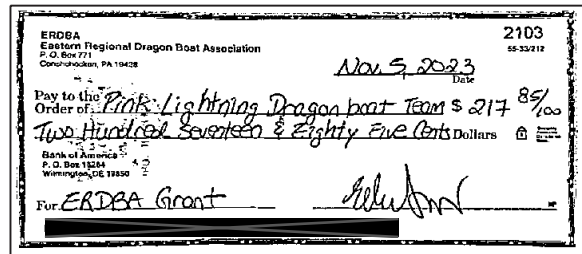 ERDBA 2103
Eastern Regional Dragon Boat Association 55-33/212
P. O. Box 771
Conshohocken, PA 19428
Nov. 5, 2023
Date
Pay to the
Order of: Pink Lightning Dragon boat Team $ 217 85/100
Two Hundred Seventeen & Eighty Five Cents Dollars
Bank of America
P. O. Box 15284
Wilmington, DE 19850
For ERDBA Grant